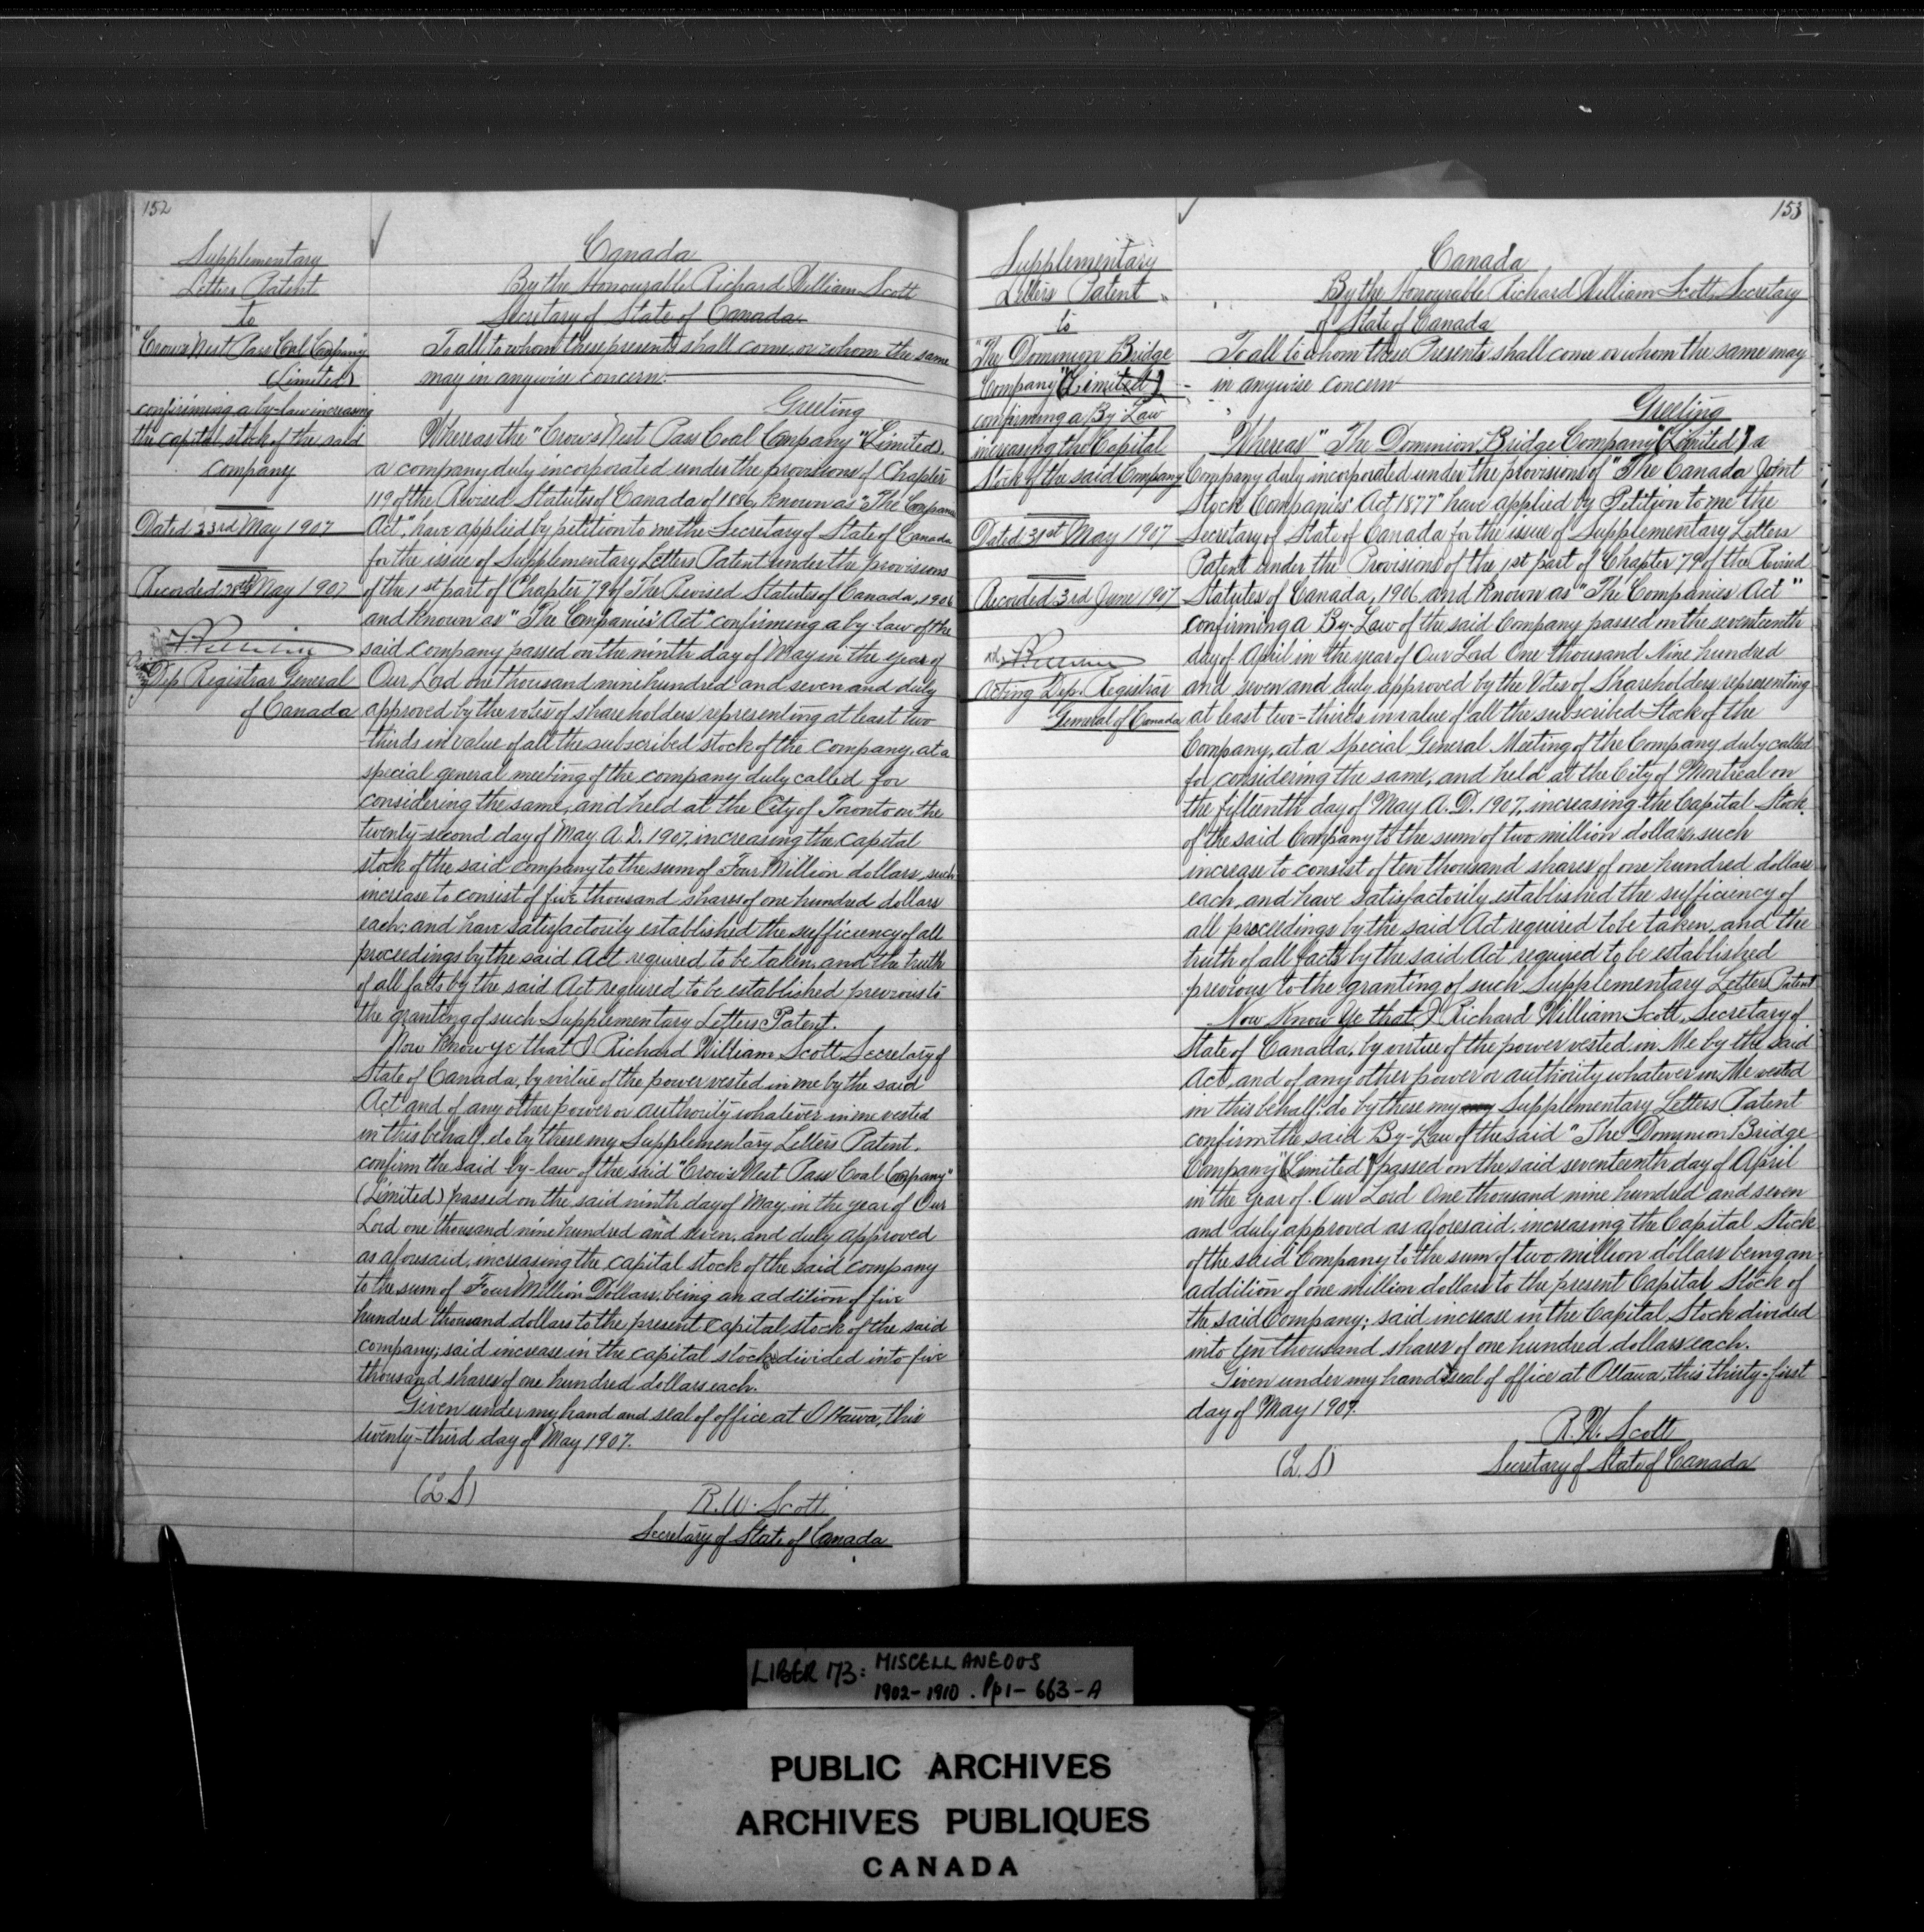 152
Supplementary
Letters Patent
to
"Crow's Nest Pass Coal Company"
(Limited)
confirming a by-law increasing
the capital stock of the said
Company
Dated 23rd May 1907
Recorded 30th May 1907
Dep Registrar General
of Canada
Canada
By the Honourable Richard William Scott
Secretary of State of Canada
To all to whom these presents shall come or whom the same
may in anywise concern.
Greeting
Whereas the "Crow's Nest Pass Coal Company" (Limited),
a company duly incorporated under the provisions of Chapter
119 of the Revised Statutes of Canada of 1886, known as "The Companies
Act", have applied by petition to me the Secretary of State of Canada
for the issue of Supplementary Letters Patent under the provisions
of the 1st part of Chapter 79 of The Revised Statutes of Canada, 1906
and known as "The Companies Act" confirming a by-law of the
said company passed on the ninth day of May in the year of
Our Lord one thousand nine hundred and seven and duly
approved by the votes of shareholders representing at least two
thirds in value of all the subscribed stock of the company, at a
special general meeting of the company duly called for
considering the same, and held at the City of Toronto on the
twenty-second day of May A.D. 1907, increasing the capital
stock of the said company to the sum of Four Million dollars, such
increase to consist of five thousand shares of one hundred dollars
each: and have satisfactorily established the sufficiency of all
proceedings by the said Act required to be taken, and the truth
of all facts by the said Act required to be established previous to
the granting of such Supplementary Letters Patent.
Now Know ye that I Richard William Scott Secretary of
State of Canada, by virtue of the power vested in me by the said
Act and of any other power or authority whatever in me vested
in this behalf, do by these my Supplementary Letters Patent,
confirm the said by-law of the said "Crow's Nest Pass Coal Company"
(Limited) passed on the said ninth day of May, in the year of Our
Lord one thousand nine hundred and seven, and duly approved
as aforesaid, increasing the capital stock of the said company
to the sum of Four Million Dollars, being an addition of five
hundred thousand dollars to the present Capital stock of the said
company; said increase in the capital stock divided into five
thousand shares of one hundred dollars each.
Given under my hand and seal of office at Ottawa, this
twenty-third day of May 1907.
(L.S)
R.W. Scott
Secretary of State of Canada
153
Supplementary
Letters Patent
to
"The Dominion Bridge
Company" (Limited)
confirming a By-Law
increasing the Capital
Stock of the said Company
Dated 31st May 1907
Recorded 3rd June 1907
Acting Dep. Registrar
General of Canada
Canada
By the Honourable Richard William Scott, Secretary
of State of Canada
To all to whom these Presents shall come or whom the same may
in anywise concern
Greeting
Whereas "The Dominion Bridge Company" (Limited) a
Company duly incorporated under the provisions of "The Canada Joint
Stock Companies' Act 1877" have applied by Petition to me the
Secretary of State of Canada for the issue of Supplementary Letters
Patent under the Provisions of the 1st part of Chapter 79 of the Revised
Statutes of Canada, 1906 and known as "The Companies Act"
confirming a By-Law of the said Company passed on the seventeenth
day of April in the year of Our Lord One thousand Nine hundred
and seven and duly approved by the Votes of Shareholders representing
at least two-thirds in value of all the subscribed Stock of the
Company, at a Special General Meeting of the Company duly called
for considering the same, and held at the City of Montreal on
the fifteenth day of May A.D. 1907, increasing the Capital Stock
of the said Company to the sum of two million dollars, such
increase to consist of ten thousand shares of one hundred dollars
each, and have satisfactorily established the sufficiency of
all proceedings by the said Act required to be taken, and the
truth of all facts by the said Act required to be established
previous to the granting of such Supplementary Letters Patent
Now Know Ye that I Richard William Scott, Secretary of
State of Canada, by virtue of the power vested in Me by the said
Act, and of any other power or authority whatever in Me vested
in this behalf, do by these my my Supplementary Letters Patent
confirm the said By-Law of the said "The Dominion Bridge
Company" (Limited) passed on the said seventeenth day of April
in the year of Our Lord One thousand nine hundred and seven
and duly approved as aforesaid, increasing the Capital Stock
of the said Company to the sum of two million dollars being an
addition of one million dollars to the present Capital Stock of
the said Company; said increase in the Capital Stock divided
into ten thousand shares of one hundred dollars each.
Given under my hand & seal of office at Ottawa, this thirty-first
day of May 1907.
R.W. Scott
(L.S)
Secretary of State of Canada
LIBER 173: MISCELLANEOUS
1902-1910. Pp 1-663-A
PUBLIC ARCHIVES
ARCHIVES PUBLIQUES
CANADA